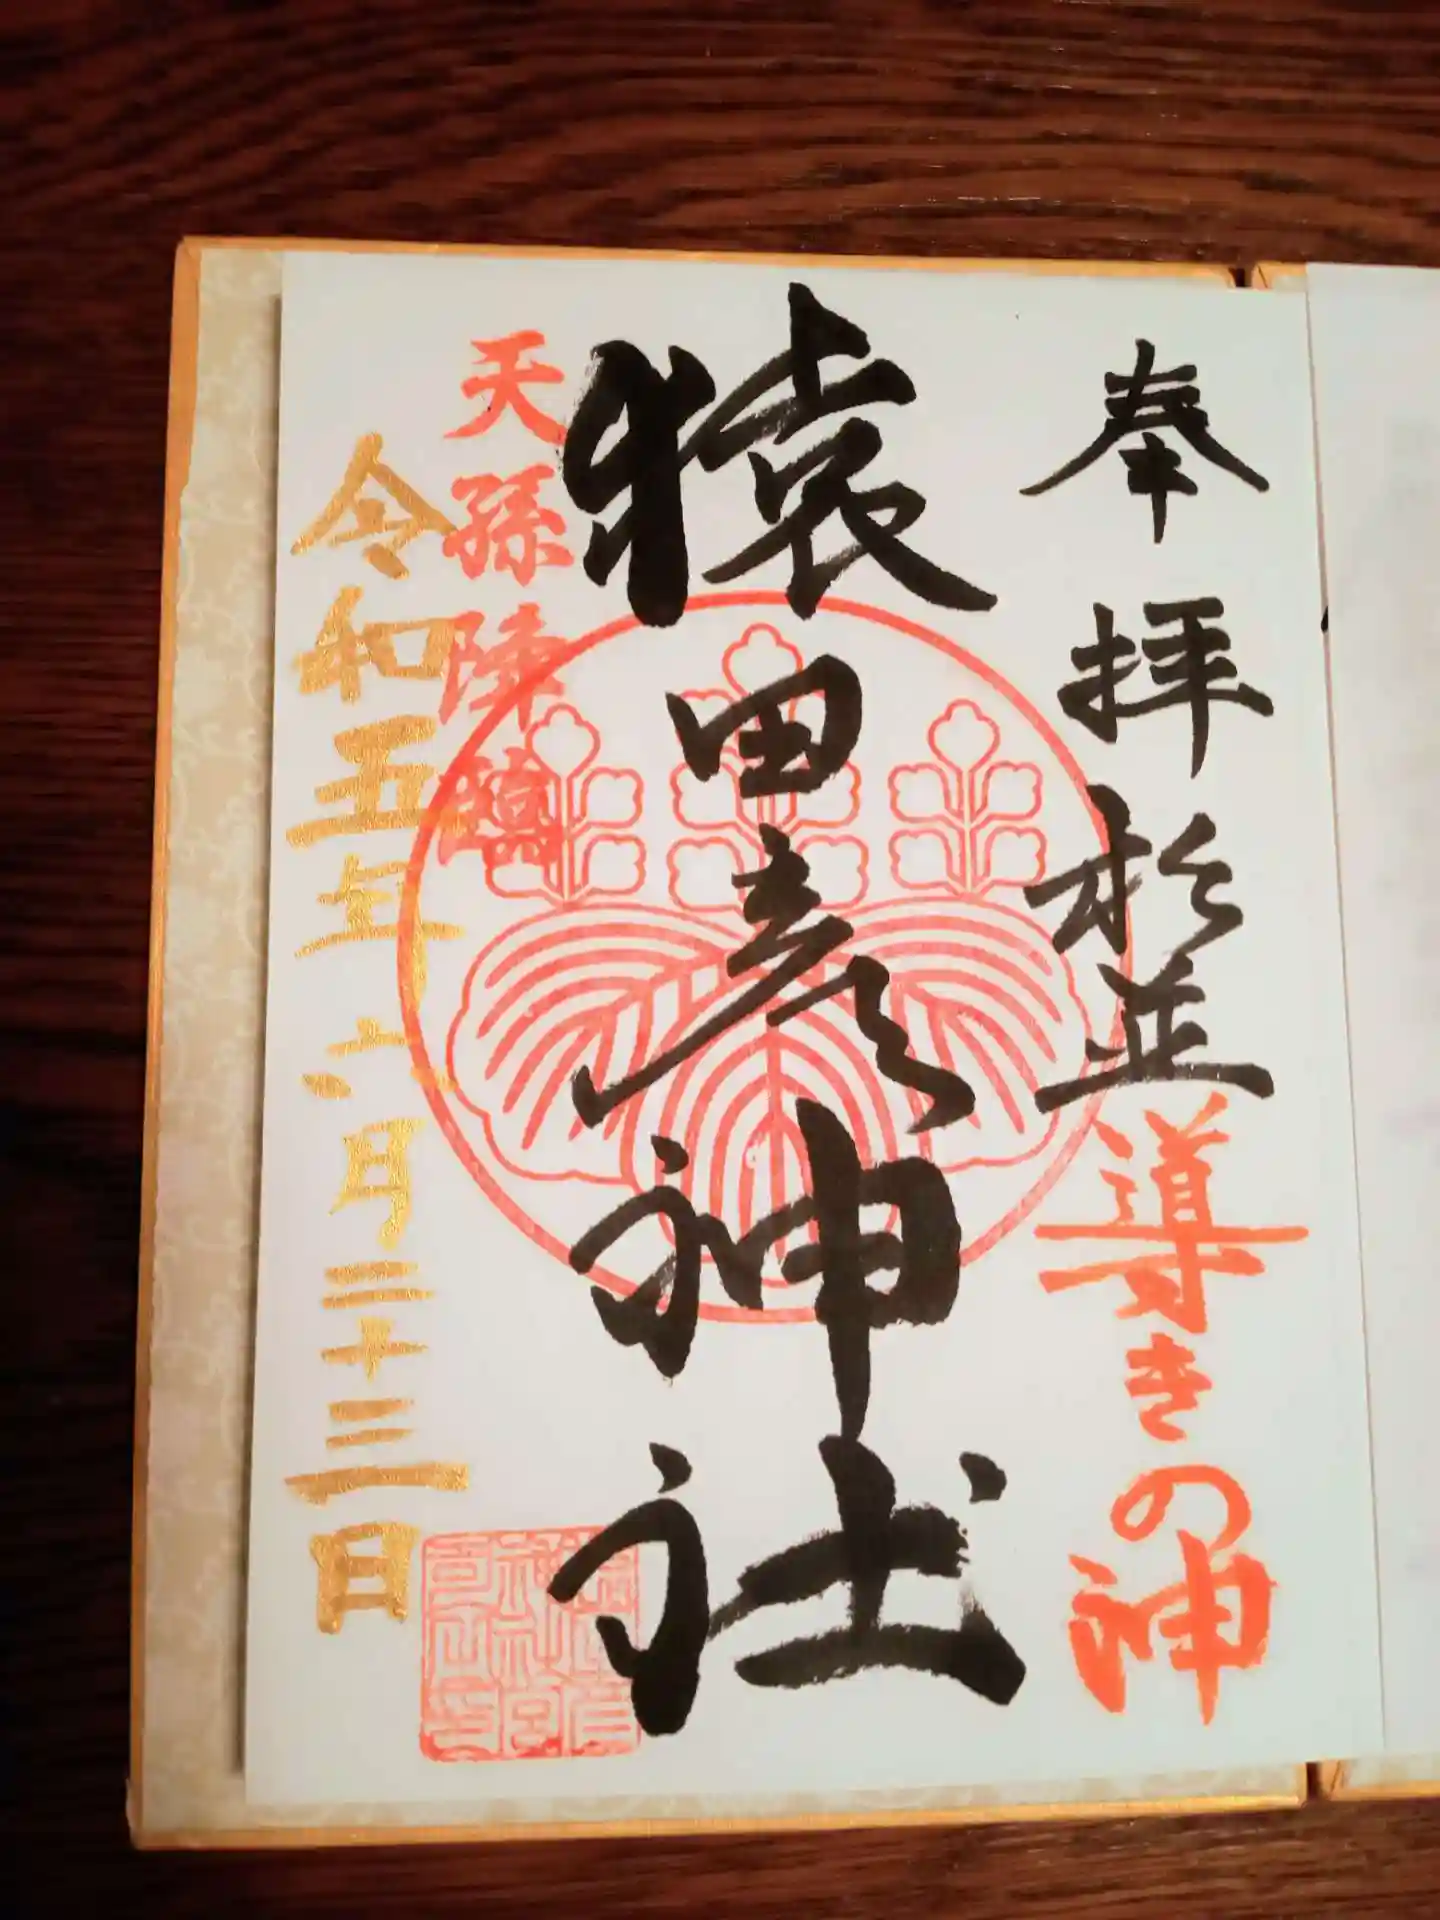 奉拝 松並 導きの神
猿田彦神社
天孫降臨
令和五年六月二十三日